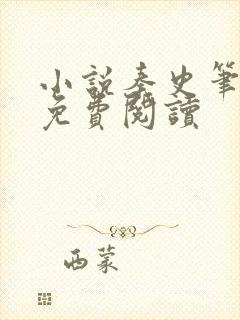 小說秦史筆
免費閱讀
西蒙